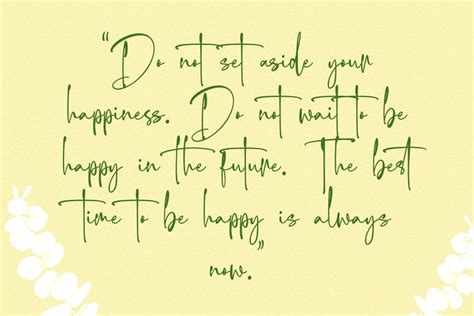 "Do not set aside your
happiness. Do not wait to be
happy in the future. The best
time to be happy is always
now."